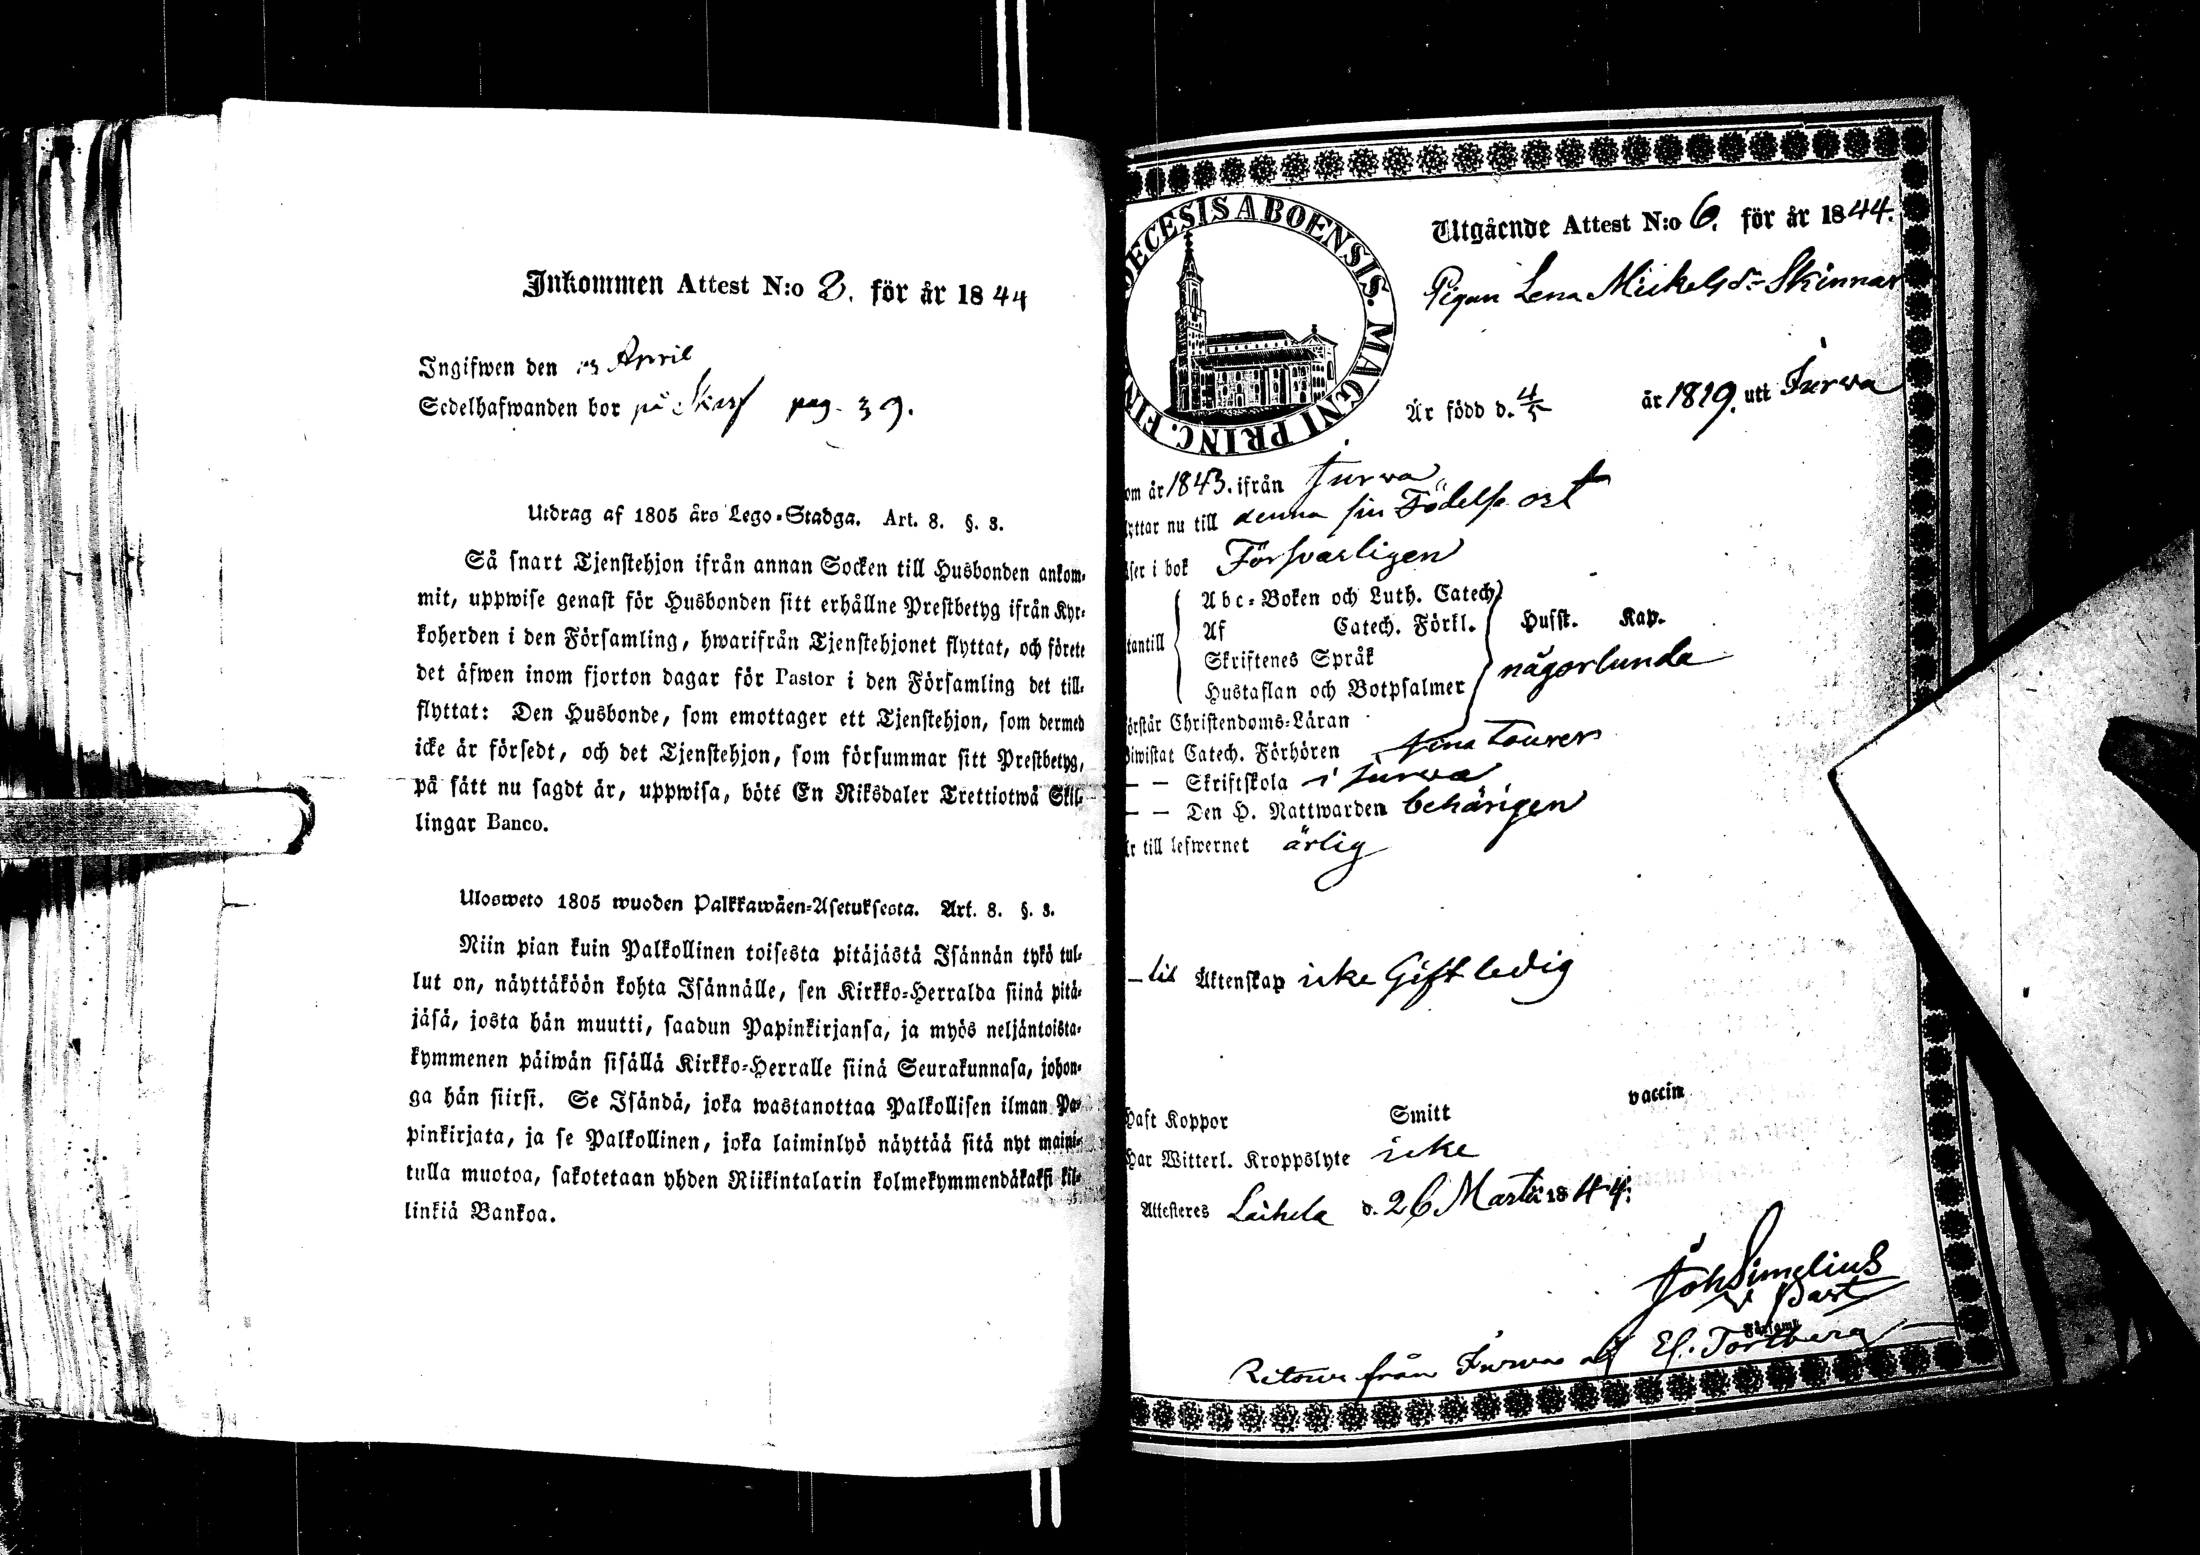 Inkommen Attest N:o 8. för år 1844
Ingifwen den 13 April
Sedelhafwanden bor på Skarf pag. 39.
Utdrag af 1805 års Lego-Stadga. Art. 8. §. 3.
Så snart Tjenstehjon ifrån annan Socken till Husbonden ankom-
mit, uppwise genast för Husbonden sitt erhållne Prestbetyg ifrån Kyr-
koherden i den Församling, hwarifrån Tjenstehjonet flyttat, och förete
det äfwen inom fjorton dagar för Pastor i den Församling det till-
flyttat: Den Husbonde, som emottager ett Tjenstehjon, som dermed
icke är försedt, och det Tjenstehjon, som försummar sitt Prestbetyg,
på sätt nu sagdt är, uppwisa, böte En Riksdaler Trettiotwå Skil-
lingar Banco.
Ulosweto 1805 wuoden Palkkawäen-Asetuksesta. Art. 8. §. 3.
Niin pian kuin Palkollinen toisesta pitäjästä Isännän tykö tul-
lut on, näyttäköön kohta Isännälle, sen Kirkko-Herralda siinä pitä-
jäsä, josta hän muutti, saadun Papinkirjansa, ja myös neljäntoista-
kymmenen päiwän sisällä Kirkko-Herralle siinä Seurakunnasa, johon-
ga hän siirsi. Se Isändä, joka wastanottaa Palkollisen ilman Pa-
pinkirjata, ja se Palkollinen, joka laiminlyö näyttää sitä nyt maini-
tulla muotoa, sakotetaan yhden Riikintalarin kolmekymmendäkaksi kil-
linkiä Bankoa.
DECESIS ABOENSIS. MAGNI PRINC. FIN
Utgående Attest N:o 6. för år 1844.
Pigan Lena Mickelsdr Skinnar
Är född d. 4/5 år 1819. utt Jurva
om år 1843. ifrån Jurva
yttar nu till denna sin Födelse ort
äser i bok Försvarligen
Abc-Boken och Luth. Catech.
Af Catech. Förkl. Husst. Kap.
tantill Skriftenes Språk någorlunda
Hustaflan och Botpsalmer
örstår Christendoms-Läran
Biwistat Catech. Förhören sina tourer
— — Skriftskola i Jurva
— — Den H. Nattwarden behörigen
Är till lefwernet ärlig
— till Äktenskap icke Gift ledig
vaccin
Haft Koppor Smitt
Har Witterl. Kroppslyte icke
Attesteres Laihela d. 26 Martii 1844.
Joh Simelius
Past
Församl
Retour från Jurva af El. Fortberg